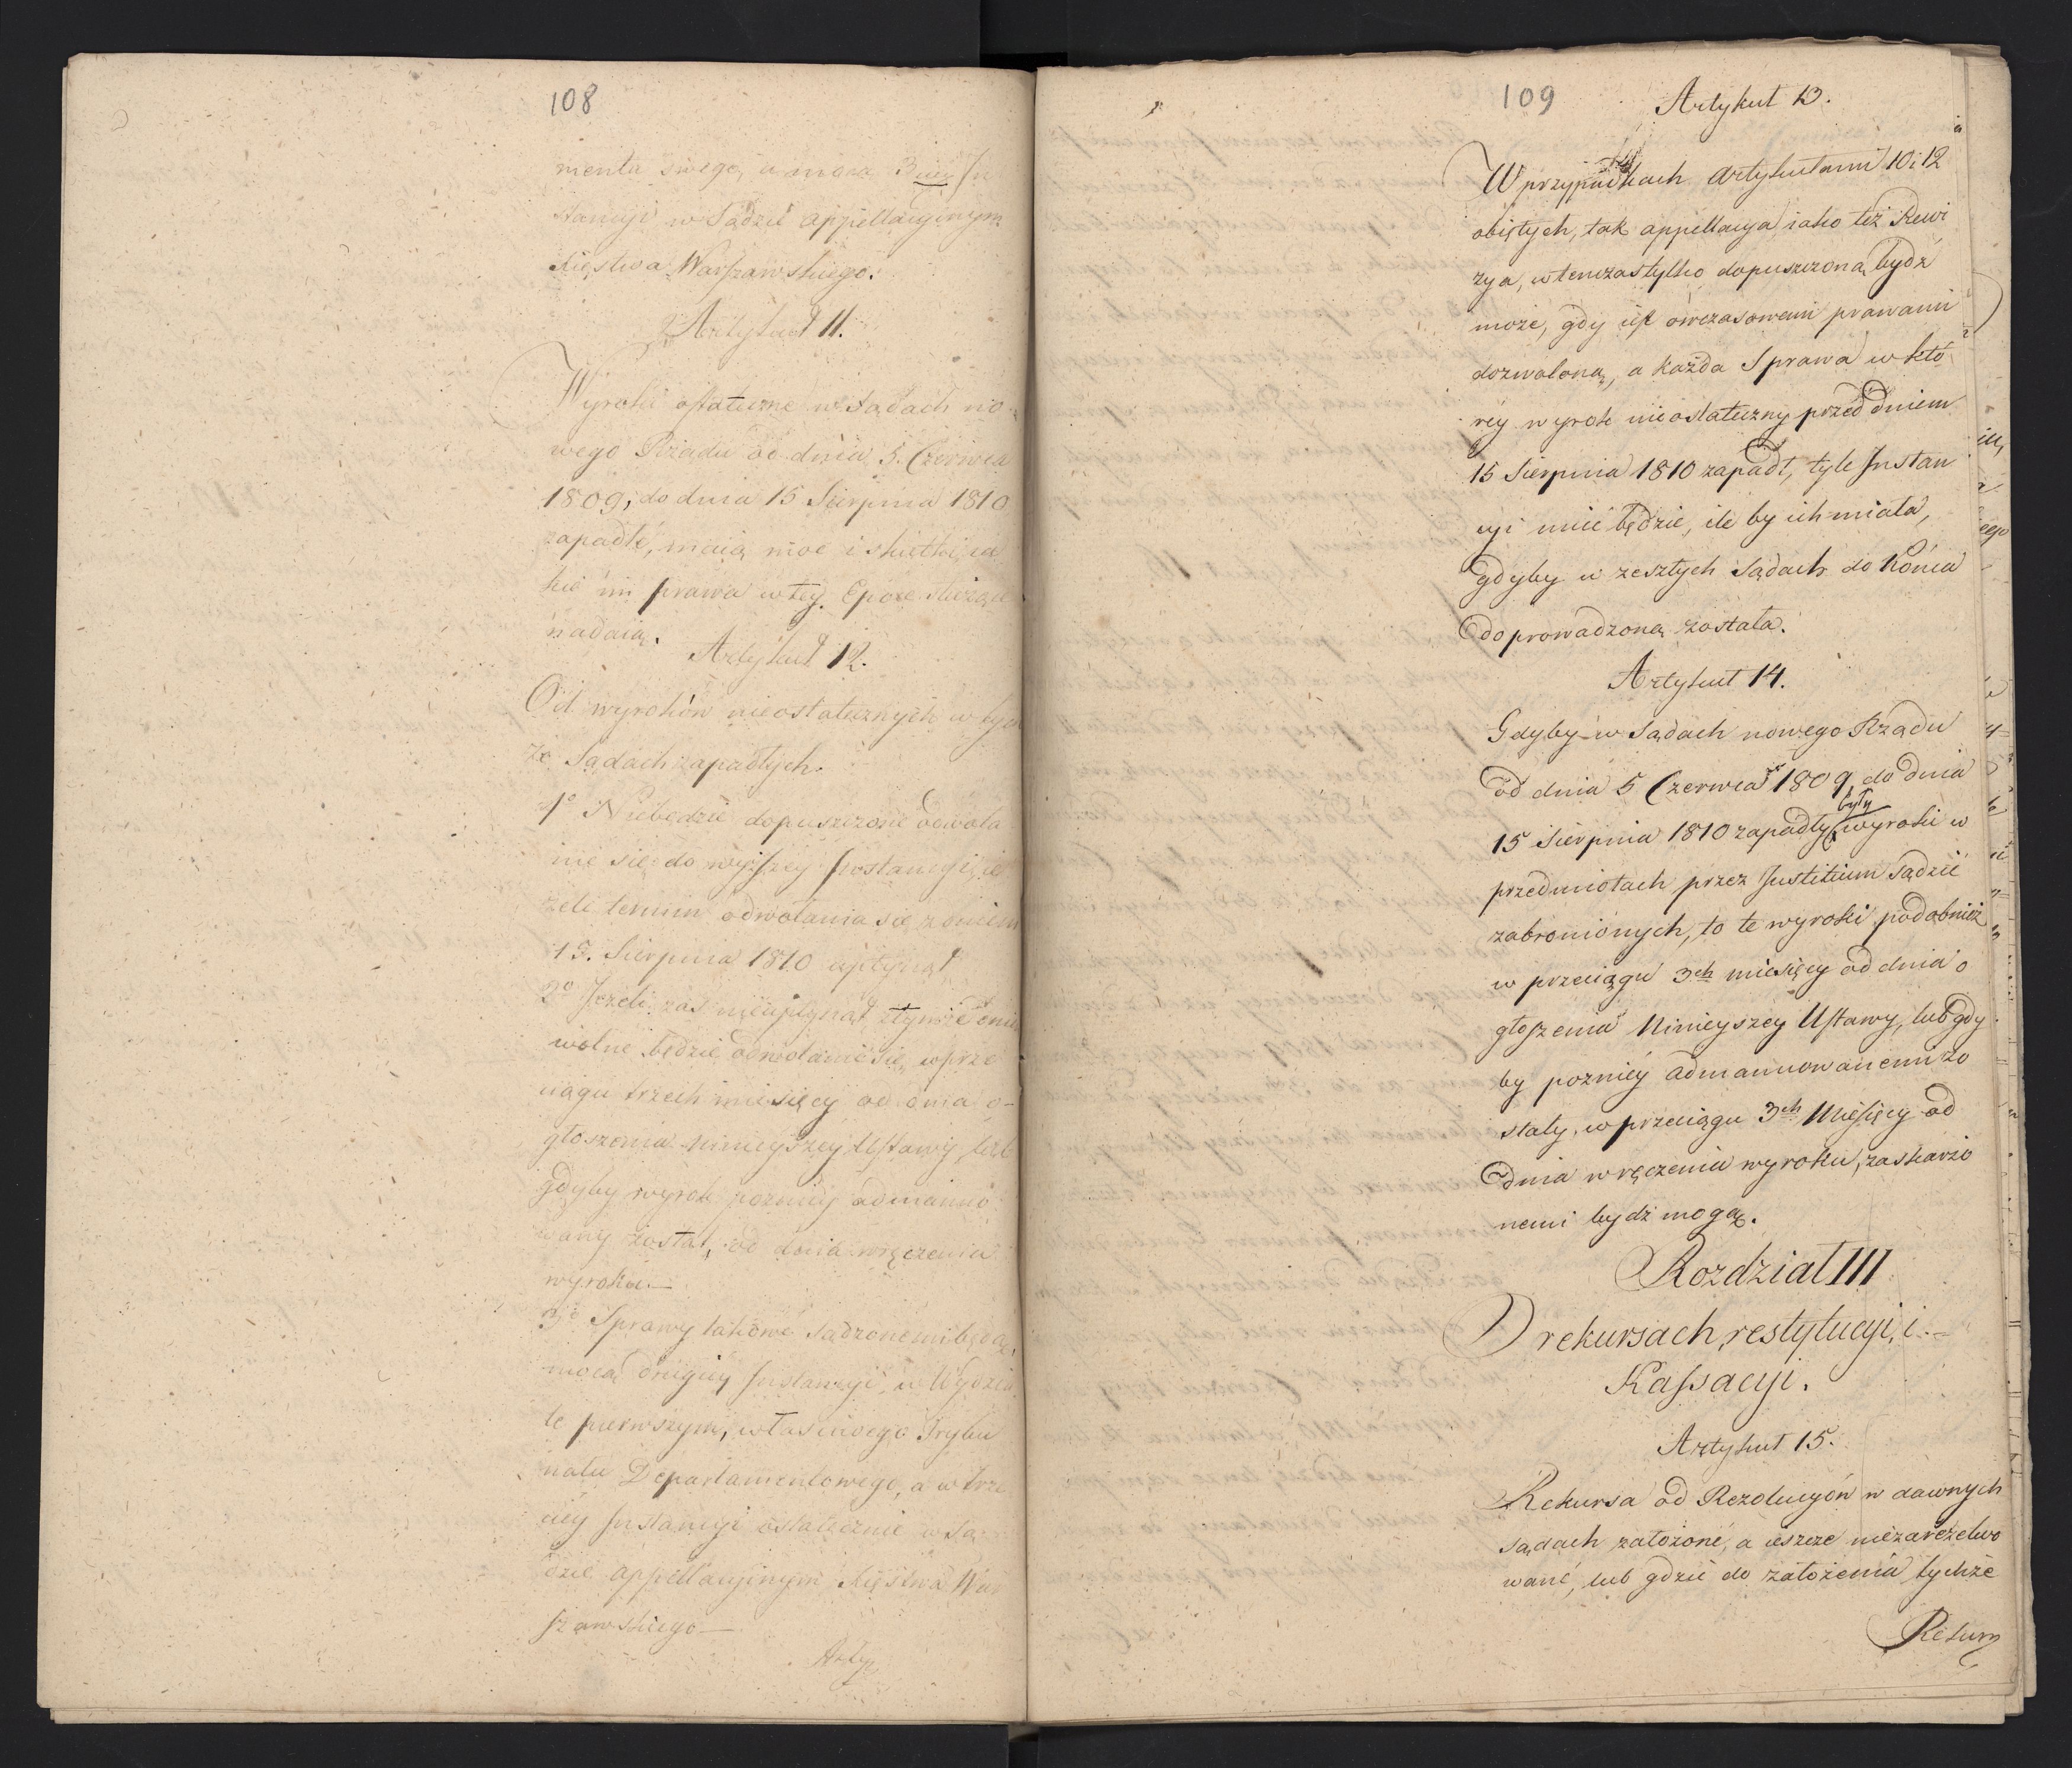 108
mentu swego, a mocą 3ciey In
stancyi w Sądzie appellacyinym
Xięstwa Warszawskiego.
Artykuł 11.
Wyroki ostateczne w Sądach no-
wego Rządu od dnia 5. Czerwca
1809, do dnia 15 Sierpnia 1810
zapadłe, maią moc i skutki, ia
kie im prawa w tey Epoce służące
nadaią.
Artykuł 12.
Od wyroków nieostatecznych w tych
że Sądach zapadłych.
1o Niebędzie dopuszczone odwoła
nie się do wyższey Instancyi, ie
żeli termin odwołania się z dniem
15. Sierpnia 1810 upłynął
2o Jeżeli zaś nieupłynął z tymże dniem
wolne będzie odwołanie się w prze
ciągu trzech miesięcy od dnia o-
głoszenia ninieyszey Ustawy, lub
gdyby wyrok pozniey admanuo
wany został, od dnia wręczenia
wyroku.—
3o Sprawy takowe sądzonemi będą
mocą drugiey Instancyi, w Wydzia
le pierwszym, właściwego Trybu
nału Departamentowego, a w trze
ciey Instancyi ostatecznie w Są
dzie appellacyinym Xięstwa War
szawskiego—
Arty
109
Artykuł 13.
W przypadkach Artykułami 10 i 12
obiętych, tak appellacya iako też Rewi
zya, wtenczas tylko dopuszczoną bydź
może, gdy iest owczasowemi prawami
dozwoloną, a każda Sprawa w któ
rey wyrok nieostateczny przed dniem
15 Sierpnia 1810 zapadł, tyle Instan
cyi mieć będzie, ile by ich miała,
gdyby w zeszłych Sądach do Końca
doprowadzoną została.
Artykuł 14.
Gdyby w Sądach nowego Rządu
od dnia 5 Czerwca 1809 do dnia
były
15 Sierpnia 1810 zapadły wyroki w
przedmiotach przez Justitium Sądzić
zabronionych, to te wyroki podobnież
w przeciągu 3ch miesięcy od dnia o
głoszenia Ninieyszey Ustawy, lub gdy
by pozniey admanuowanemi zo
stały, w przeciągu 3ch Miesięcy od
dnia wręczenia wyroku, zaskarżo
nemi bydź mogą.
Rozdział III
O rekursach, restytucyi, i.-
Kassacyi.
Artykuł 15.
Rekursa od Rezolucyów w dawnych
Sądach założone, a ieszcze niezarezelwo
wane, lub gdzie do założenia tychże
Rekurs